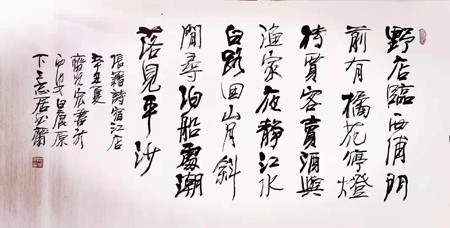 野店臨西浦門
前有橘花停燈
待賈客賣酒與
漁家夜靜江水
白路回山月斜
閒尋泊船處潮
落見平沙
張籍詩宿江店
辛丑夏
白鹿原